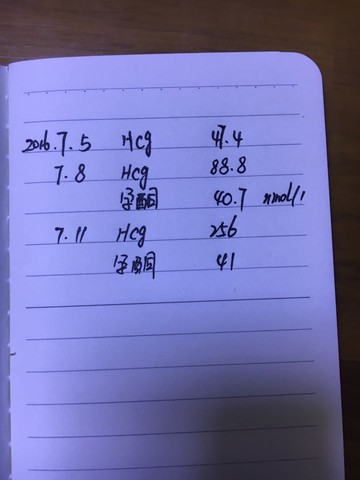 2016.7.5 Hcg 47.4
7.8 Hcg 88.8
孕酮 40.7 nmol/l
7.11 Hcg 256
孕酮 41